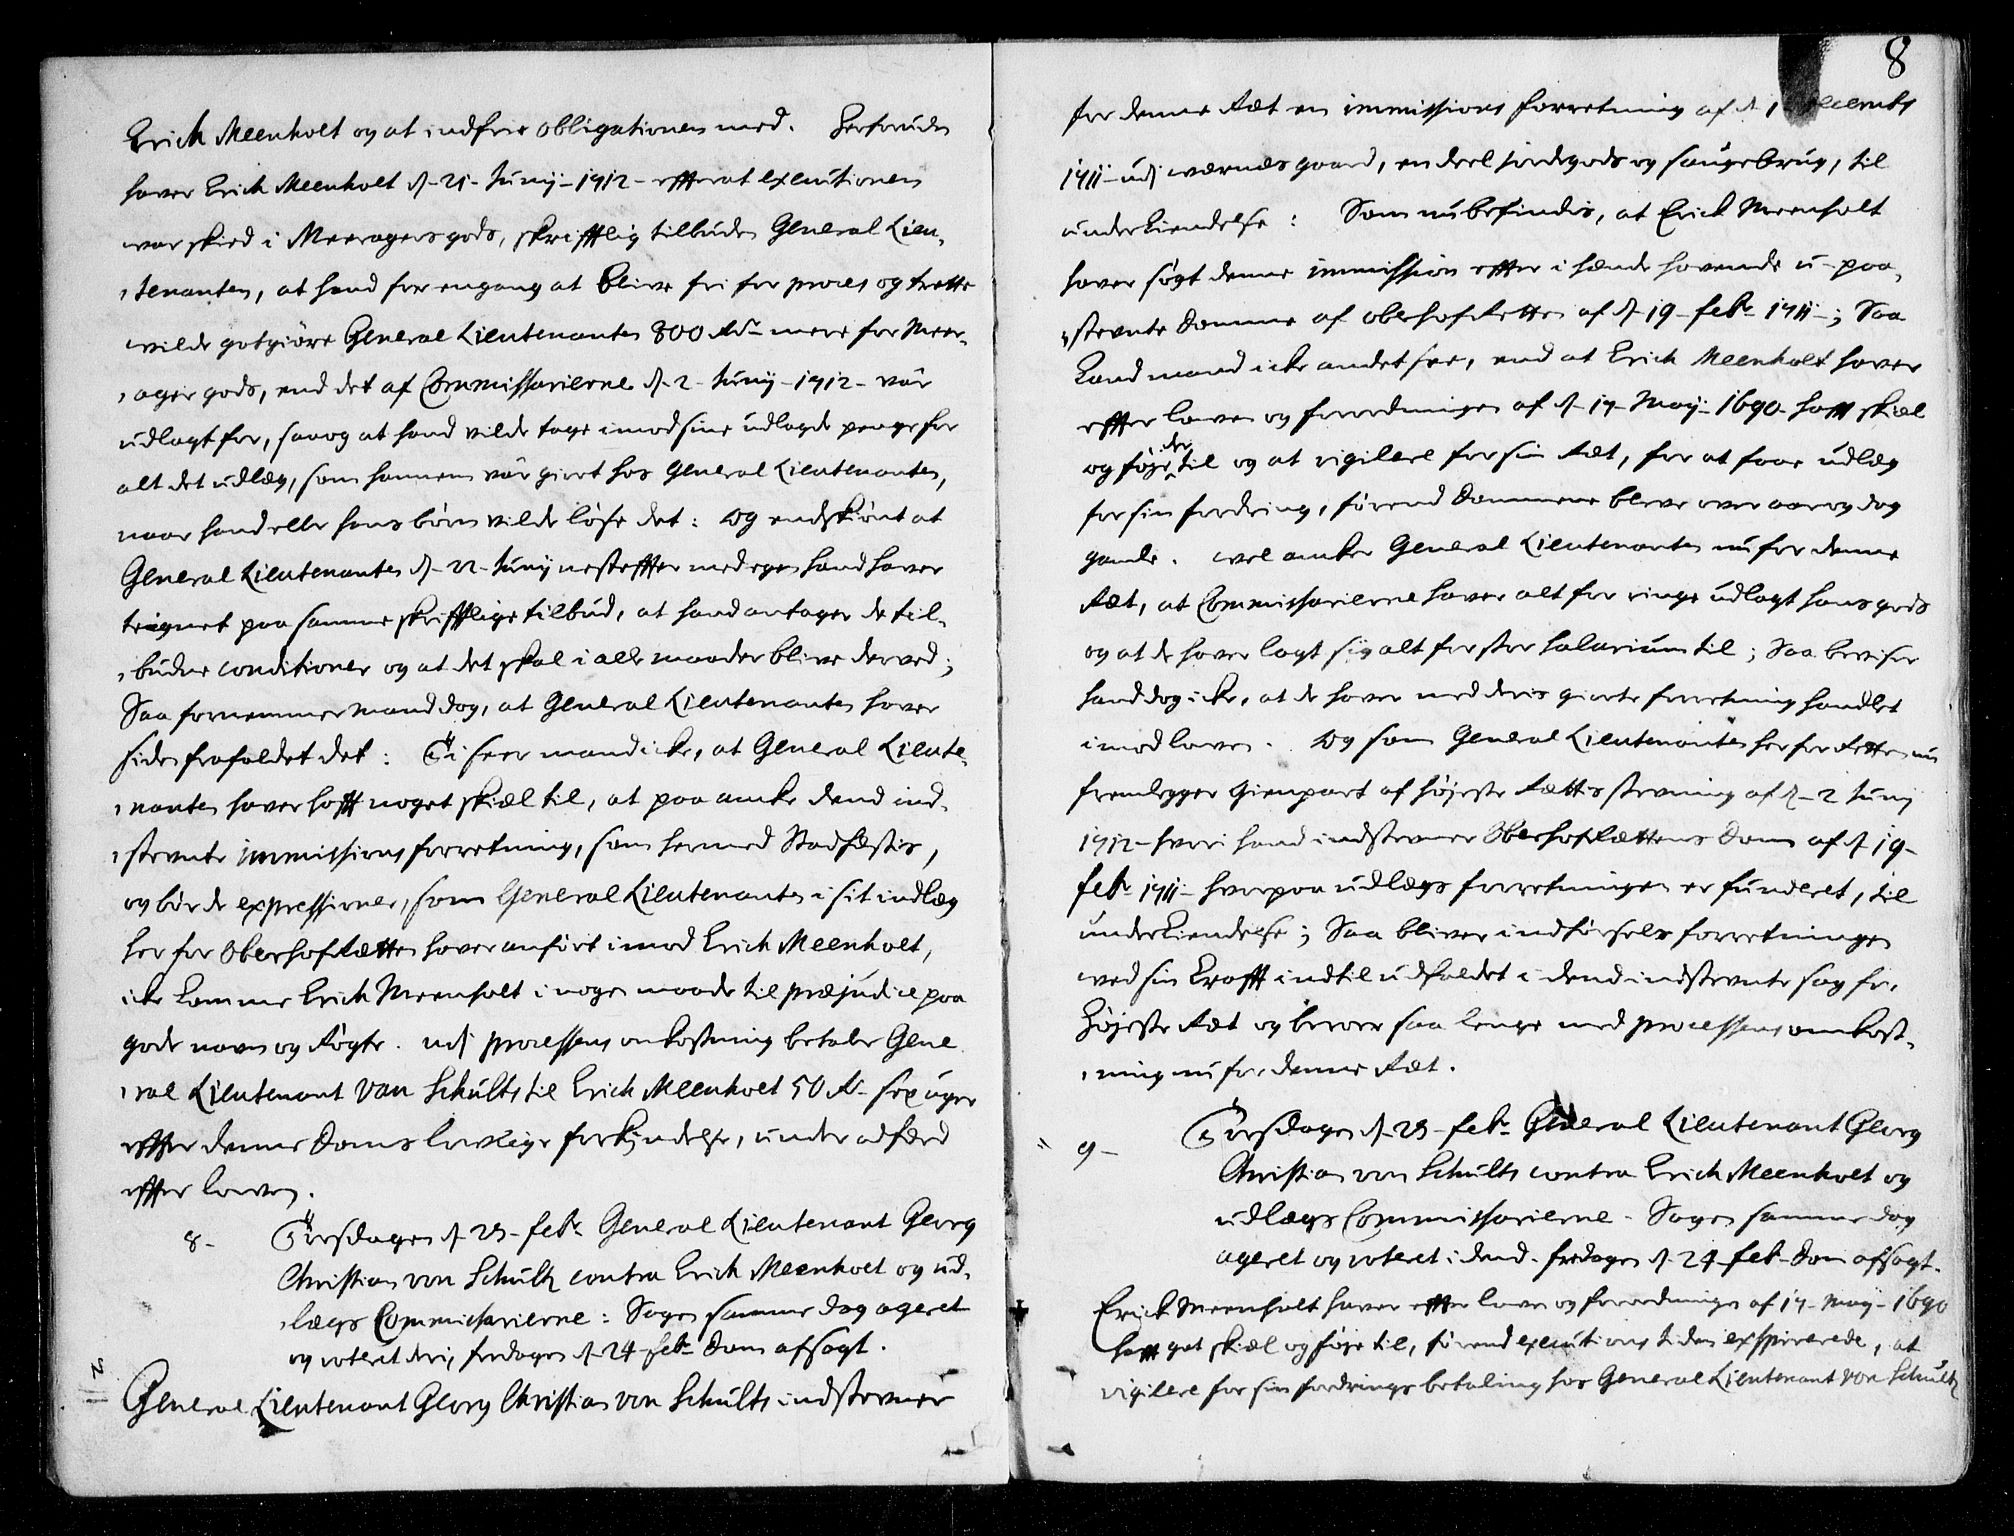 Erich Meenholt og at indfrie obligationen med. Herforuden
haver Erich Meenholt d. 21. Junij 1712 effterat executionen
war skied i Meeragers gods, skrifftlig tilbuden General Lieu-
tenanten, at hand for engang at blive fri for proces og trette
vilde gotgiøre General Lieutenanten 800 Rdr. mere for Meer-
ager gods, end det af Commissarierne d. 2. Junij 1712 var
udlagt for, saa og at hand vilde tage imod sine udlagde penge for
alt det udlæg, som hannem var giort hos General Lieutenanten,
naar hand elle hans børn vilde løse det: Og endskiønt at
General Lieutenanten d. 22. Junij nesteffter med egen hand haver
teignet paa samme skrifftlige tilbud, at hand antager de til-
budne conditioner og at det skal i alle maader blive derved;
Saa fornemmer mand dog, at General Lieutenanten haver
siden frafaldet det: Ti seer mand icke, at General Lieute-
nanten haver hafft noget skiæl til, at paa ancke dend ind-
stevnte immissions forretning, som hermed Stadfæstis,
og bør de expressioner, som General Lieutenanten i sit indlæg
her for Oberhofrætten haver anført imod Erich Meenholt,
icke komme Erich Meenholt i nogen maade til præjudice paa
gode navn og Rögte. udj processens omkostning betaler Gene-
ral Lieutenant von Schults til Erich Meenholt 50 Rdr. sex uger
effter denne Doms lovlige forkyndelse, under adfærd
effter loven.
8- Tirsdagen d. 23. febr. General Lieutenant Georg
Christian von Schultz contra Erich Meenholt og ud-
lægs Commissarierne: Sagen samme dag ageret
og voteret deri, fredagen d. 24 febr. Dom afsagt.
General Lieutenant Georg Christian von Schults indstevner
8
for denne Ræt en immissions forretning af d. 1
1711 udj wærnæs gaard, en deel jordegods og saugebrug, til
underkiendelse: Som nu befindis, at Erich Meenholt
haver søgt denne immission effter i hænde havende u-paa-
stevnte Domme af oberhofretten af d. 19 febr. 1711; Saa
kand mand icke andet see, end at Erich Meenholt haver
effter loven og forordningen af d. 17. Maij 1690 hafft skiæl
og føje der til og at vigilere for sin Ræt, for at faae udlæg
for sin fordring, førend Dommene bleve over aar og dag
gamle. vel ancker General Lieutenanten nu for denne
Ræt, at Commissarierne haver alt for ringe udlagt hans gods
og at de haver lagt sig alt for stor Salarium til; Saa beviser
hand dog icke, at de haver med deris giorte forretning handlet
imod loven. Og som General Lieutenanten her for Retten nu
fremlegger Gienpart af højeste Rættis stevning af d. 2 Junj
1712 hvori hand indstevner Oberhofrættens Dom af d. 19
febr. 1711 hvorpaa udlægs forretningen er funderet, til
underkiendelse; Saa bliver indførsels forretningen
ved sin krafft indtil udfaldet i dend indstevnte sag for
Højeste Ræt og beroer saa lenge med processens omkost-
ning nu for denne Ræt.
9- Tirsdagen d. 23. febr. General Lieutenant Georg
Christian von Schults contra Erich Meenholt og
udlægs Commissarierne. Sagen samme dag
ageret og voteret i dend. fredagen d. 24 febr. Dom afsagt.
Erich Meenholt haver effter loven og forordningen af 17. Maij 1690
hafft got skiæl og føje til, førend executions tiden exspirerede, at
vigilere for sin fordrings betaling hos General Lieutenant von Schultz